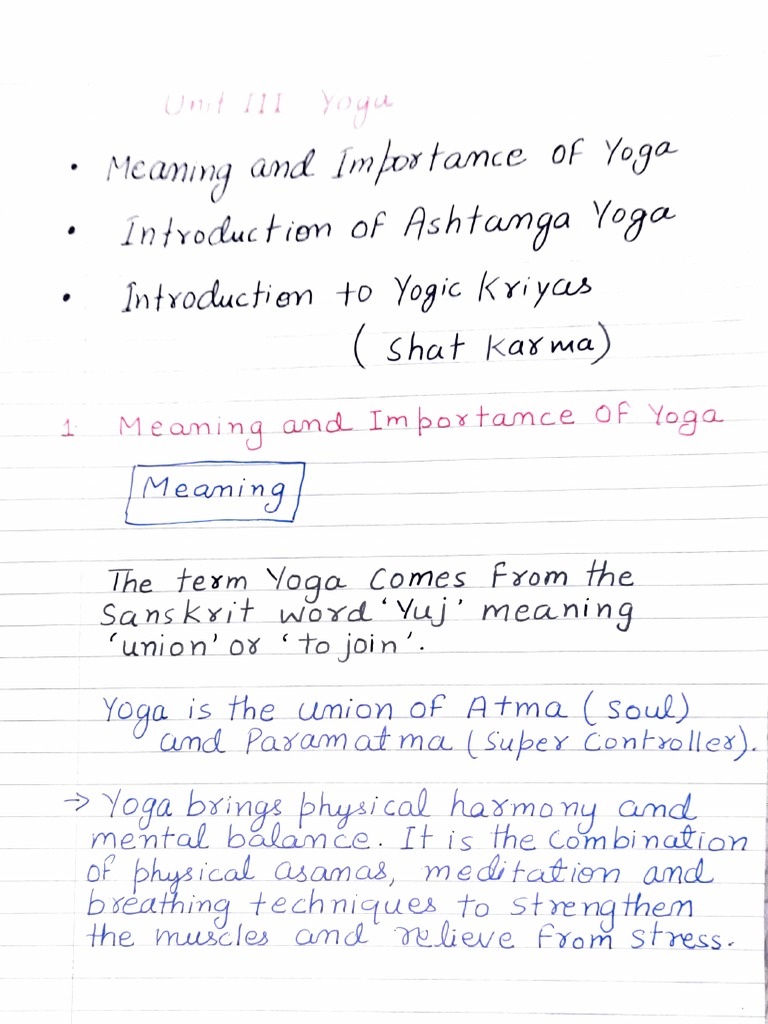 Unit III Yoga
• Meaning and Importance of Yoga
• Introduction of Ashtanga Yoga
• Introduction to Yogic Kriyas
( Shat Karma)
1 Meaning and Importance Of Yoga
Meaning
The term Yoga Comes From the
Sanskrit word 'Yuj' meaning
'union' or 'to join'.
Yoga is the union of Atma (Soul)
and Paramatma (Super Controller).
→ Yoga brings physical harmony and
mental balance. It is the Combination
of physical asanas, meditation and
breathing techniques to strengthem
the muscles and relieve From stress.